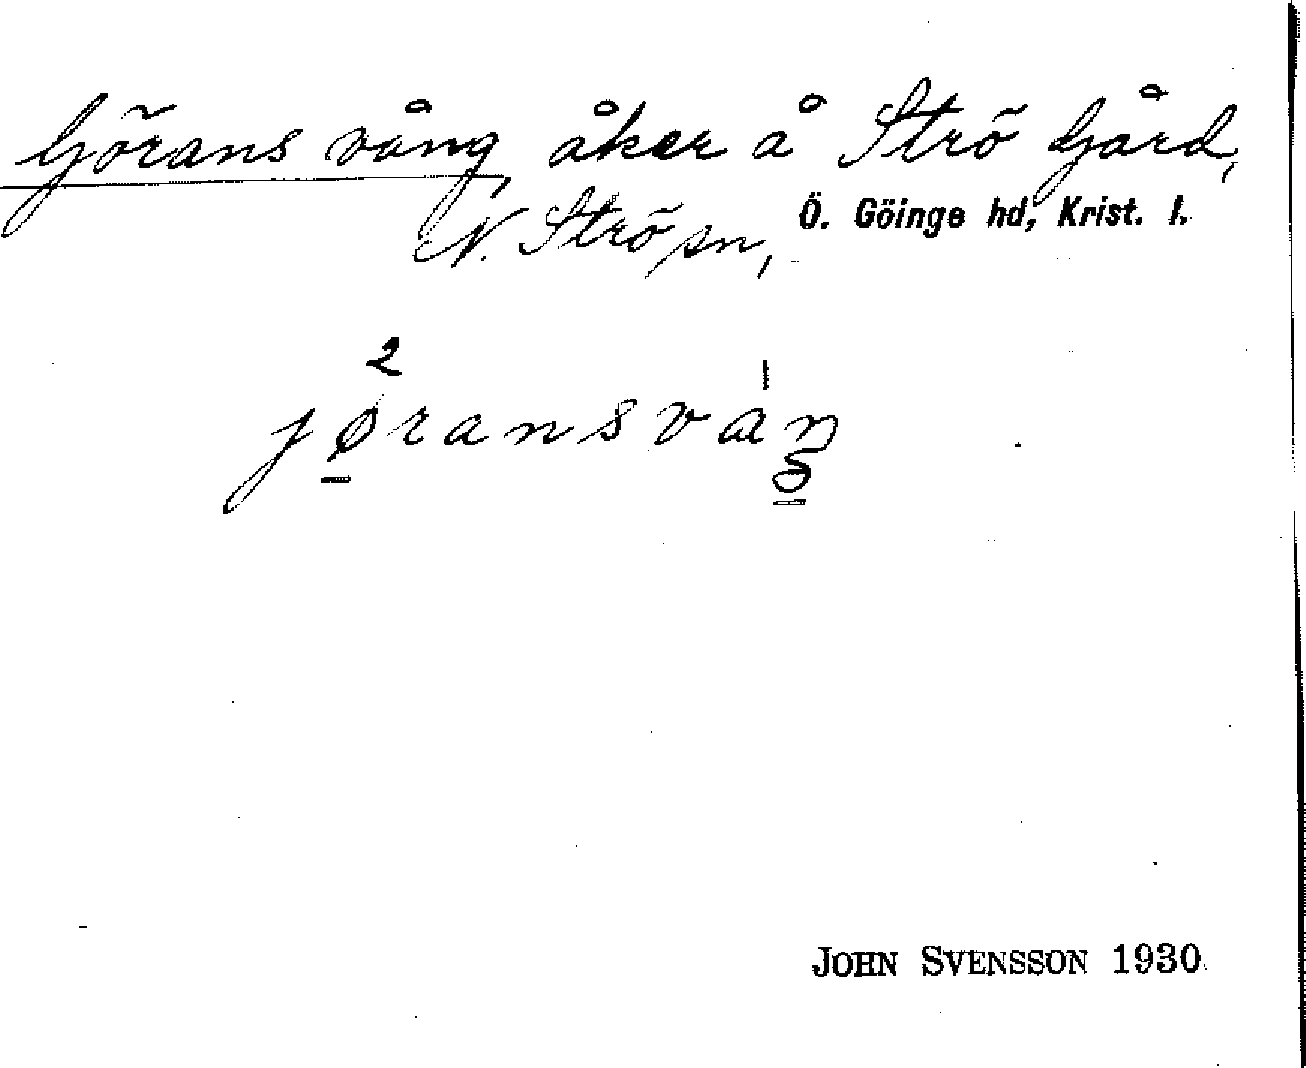 Görans vång, åker å Strö Gård,
N. Strö sn, Ö. Göinge hd, Krist. l.
2
jøransvaŋ
JOHN SVENSSON 1930